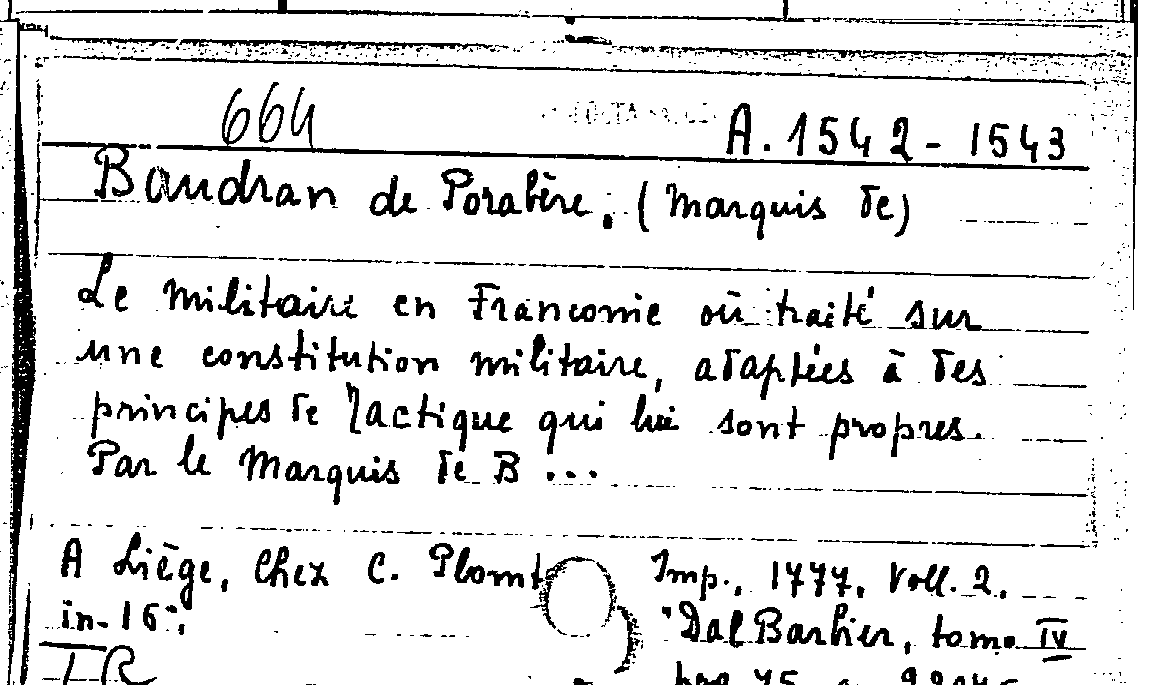 664 A. 1542 - 1543
Baudran de Porabère. (Marquis de)
Le Militaire en Franconie où traité sur
une constitution militaire, adaptées à des
principes de Tactique qui lui sont propres.
Par le Marquis de B ...
A Liège, Chez C. Plomt Imp., 1777. Voll. 2.
in-16°. "Dal Barbier, tomo IV
pag 75